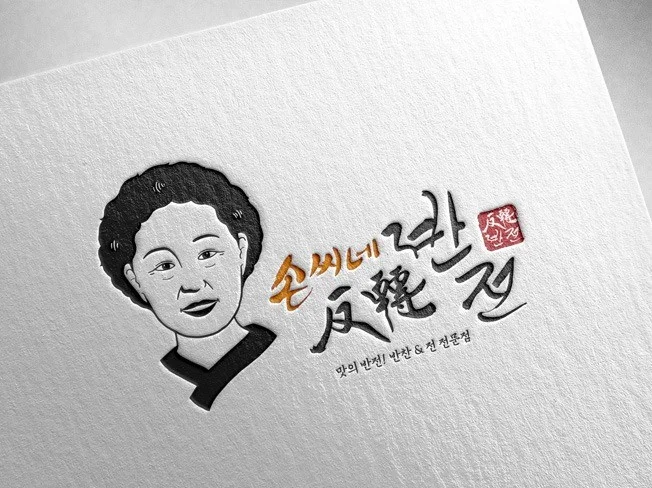 손씨네 반전
反轉
反轉
반전
맛의 반전! 반찬 & 전 전문점